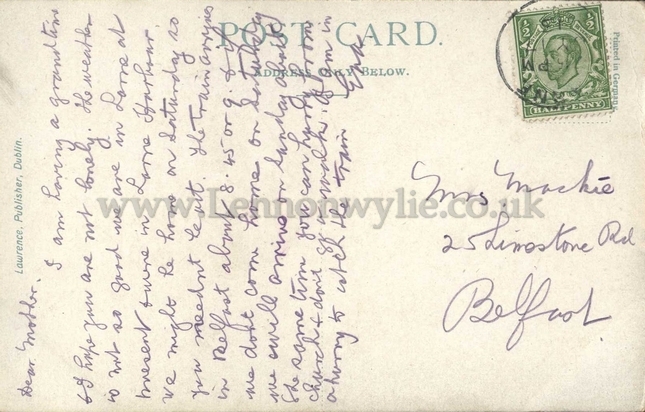 POST CARD.
ADDRESS ONLY BELOW.
Printed in Germany
Lawrence, Publisher, Dublin.
½ ½
HALFPENNY
www.Lennonwylie.co.uk
Dear Mother.
I am having a grand time
& I hope you are not lonely. The weather
is not so good we are in Larne at
present & were in Larne Harbour.
We might be home on Saturday so
you needn't be out. The train arrives
in Belfast about 8.45 or 9. & if
we don't come home on Saturday
we will arrive on Sunday about
the same time you can hurry from
church & don't go a walk. I am in
a hurry to catch the train
Mrs Mackie
25 Limestone Rd
Belfast.